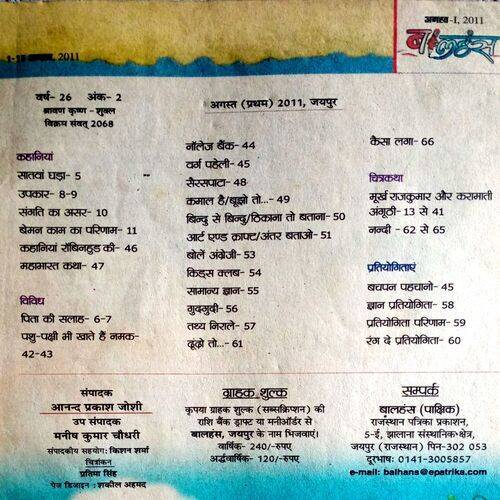 अगस्त-I, 2011
बालहंस
1-15 अगस्त, 2011
वर्ष- 26 अंक- 2
श्रावण कृष्ण - शुक्ल
विक्रम संवत् 2068
अगस्त (प्रथम) 2011, जयपुर
कहानियां
सातवां घड़ा- 5
उपकार- 8-9
संगति का असर- 10
बेमन काम का परिणाम- 11
कहानियां रॉबिनहुड की- 46
महाभारत कथा- 47
विविध
पिता की सलाह- 6-7
पशु-पक्षी भी खाते हैं नमक-
42-43
नॉलेज बैंक- 44
वर्ग पहेली- 45
सैरसपाटा- 48
कमाल है/बूझो तो...- 49
बिन्दु से बिन्दु/ठिकाना तो बताना- 50
आर्ट एण्ड क्राफ्ट/अंतर बताओ- 51
बोलें अंग्रेजी- 53
किड्स क्लब- 54
सामान्य ज्ञान- 55
गुदगुदी- 56
तथ्य निराले- 57
ढूंढ़ो तो...- 61
कैसा लगा- 66
चित्रकथा
मूर्ख राजकुमार और करामाती
अंगूठी- 13 से 41
नन्दी - 62 से 65
प्रतियोगिताएं
बचपन पहचानो- 45
ज्ञान प्रतियोगिता- 58
प्रतियोगिता परिणाम- 59
रंग दे प्रतियोगिता- 60
संपादक
आनन्द प्रकाश जोशी
उप संपादक
मनीष कुमार चौधरी
संपादकीय सहयोग: किशन शर्मा
चित्रांकन
प्रतिमा सिंह
पेज डिजाइन : शकील अहमद
ग्राहक शुल्क
कृपया ग्राहक शुल्क (सब्सक्रिप्शन) की
राशि बैंक ड्राफ्ट या मनीऑर्डर से
बालहंस, जयपुर के नाम भिजवाएं।
वार्षिक- 240/-रुपए
अर्द्धवार्षिक- 120/-रुपए
सम्पर्क
बालहंस (पाक्षिक)
राजस्थान पत्रिका प्रकाशन,
5-ई, झालाना संस्थानिक क्षेत्र,
जयपुर (राजस्थान) पिन-302 053
दूरभाष: 0141-3005857
e-mail: balhans@epatrika.com